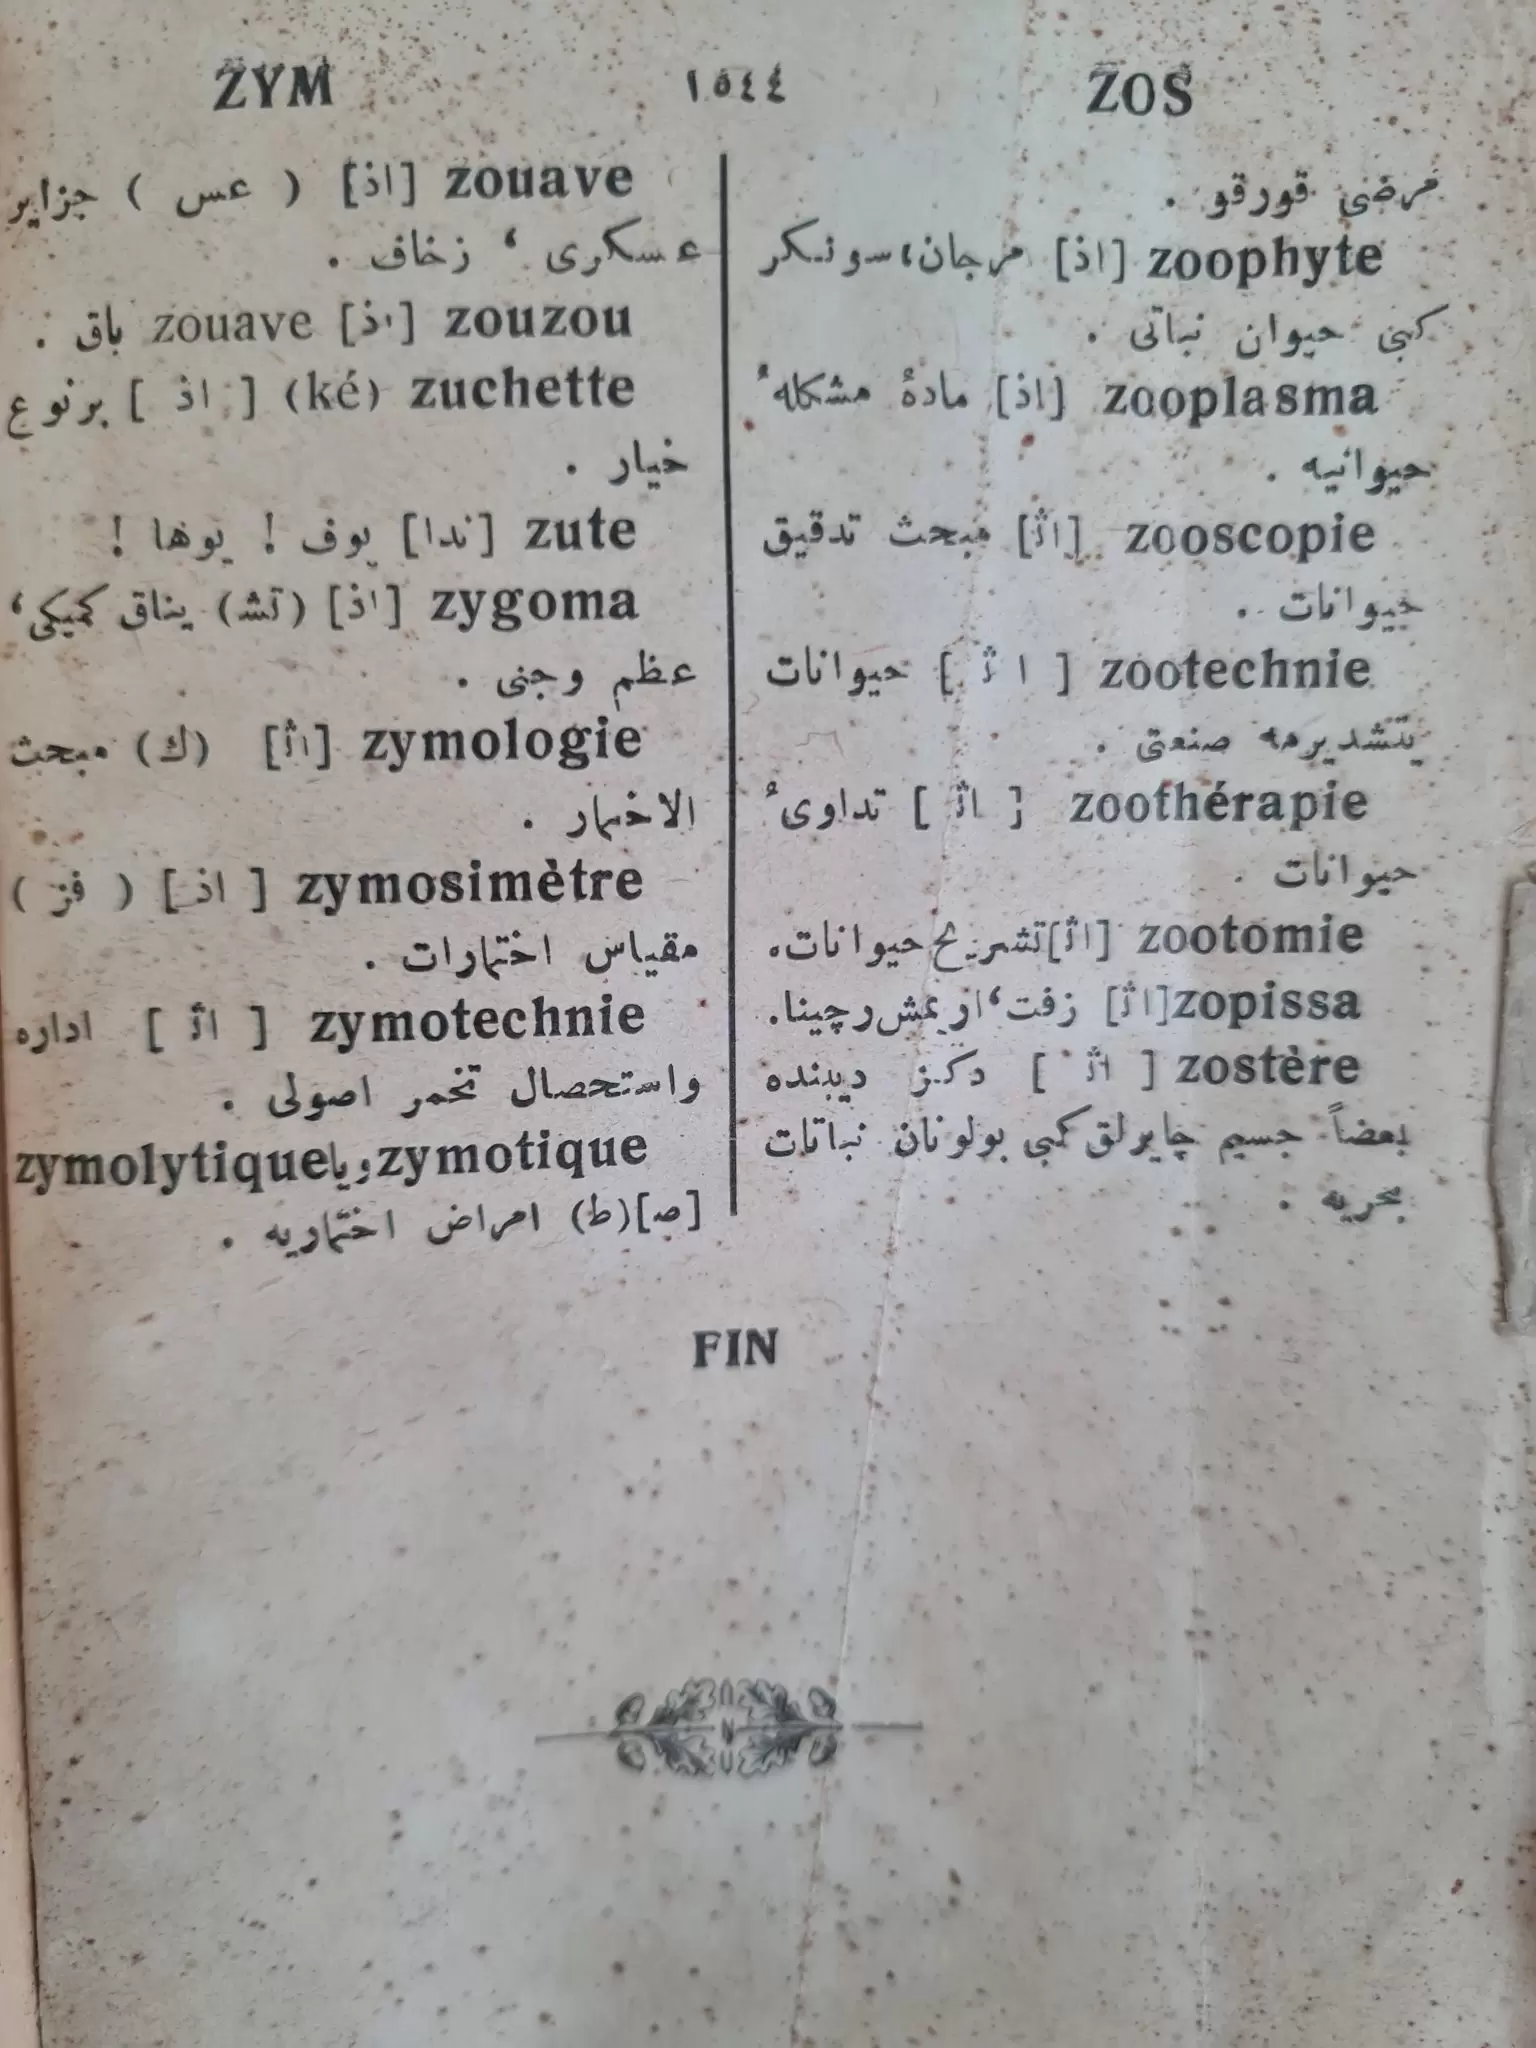 ZOS ١٥٤٤ ZYM
مرضى قورقو .
zoophyte [اذ] مرجان، سونكر
كبى حيوان نباتى .
zooplasma [اذ] مادۀ مشكلهٔ
حيوانيه .
zooscopie [اث] مبحث تدقيق
حيوانات .
zootechnie [اث] حيوانات
يتشديرمه صنعتى .
zoothérapie [اث] تداوىٔ
حيوانات .
zootomie [اث] تشريح حيوانات.
zopissa [اث] زفت، اريمش رچينا.
zostère [اث] دكز ديبنده
بعضاً جسيم چايرلق كبى بولونان نباتات
بحريه .
zouave [اذ] ( عس ) جزاير
عسكرى ، زخاف .
zouzou [اذ] zouave باق .
zuchette (ké) [اذ] برنوع
خيار .
zute [ندا] يوف ! يوها !
zygoma [اذ] (تشـ) يناق كميكى،
عظم وجنى .
zymologie [اث] (ك) مبحث
الاختمار .
zymosimètre [اذ] ( فز )
مقياس اختمارات .
zymotechnie [اث] اداره
واستحصال تخمر اصولى .
zymotique ويا zymolytique
[صـ](ط) امراض اختماريه .
FIN